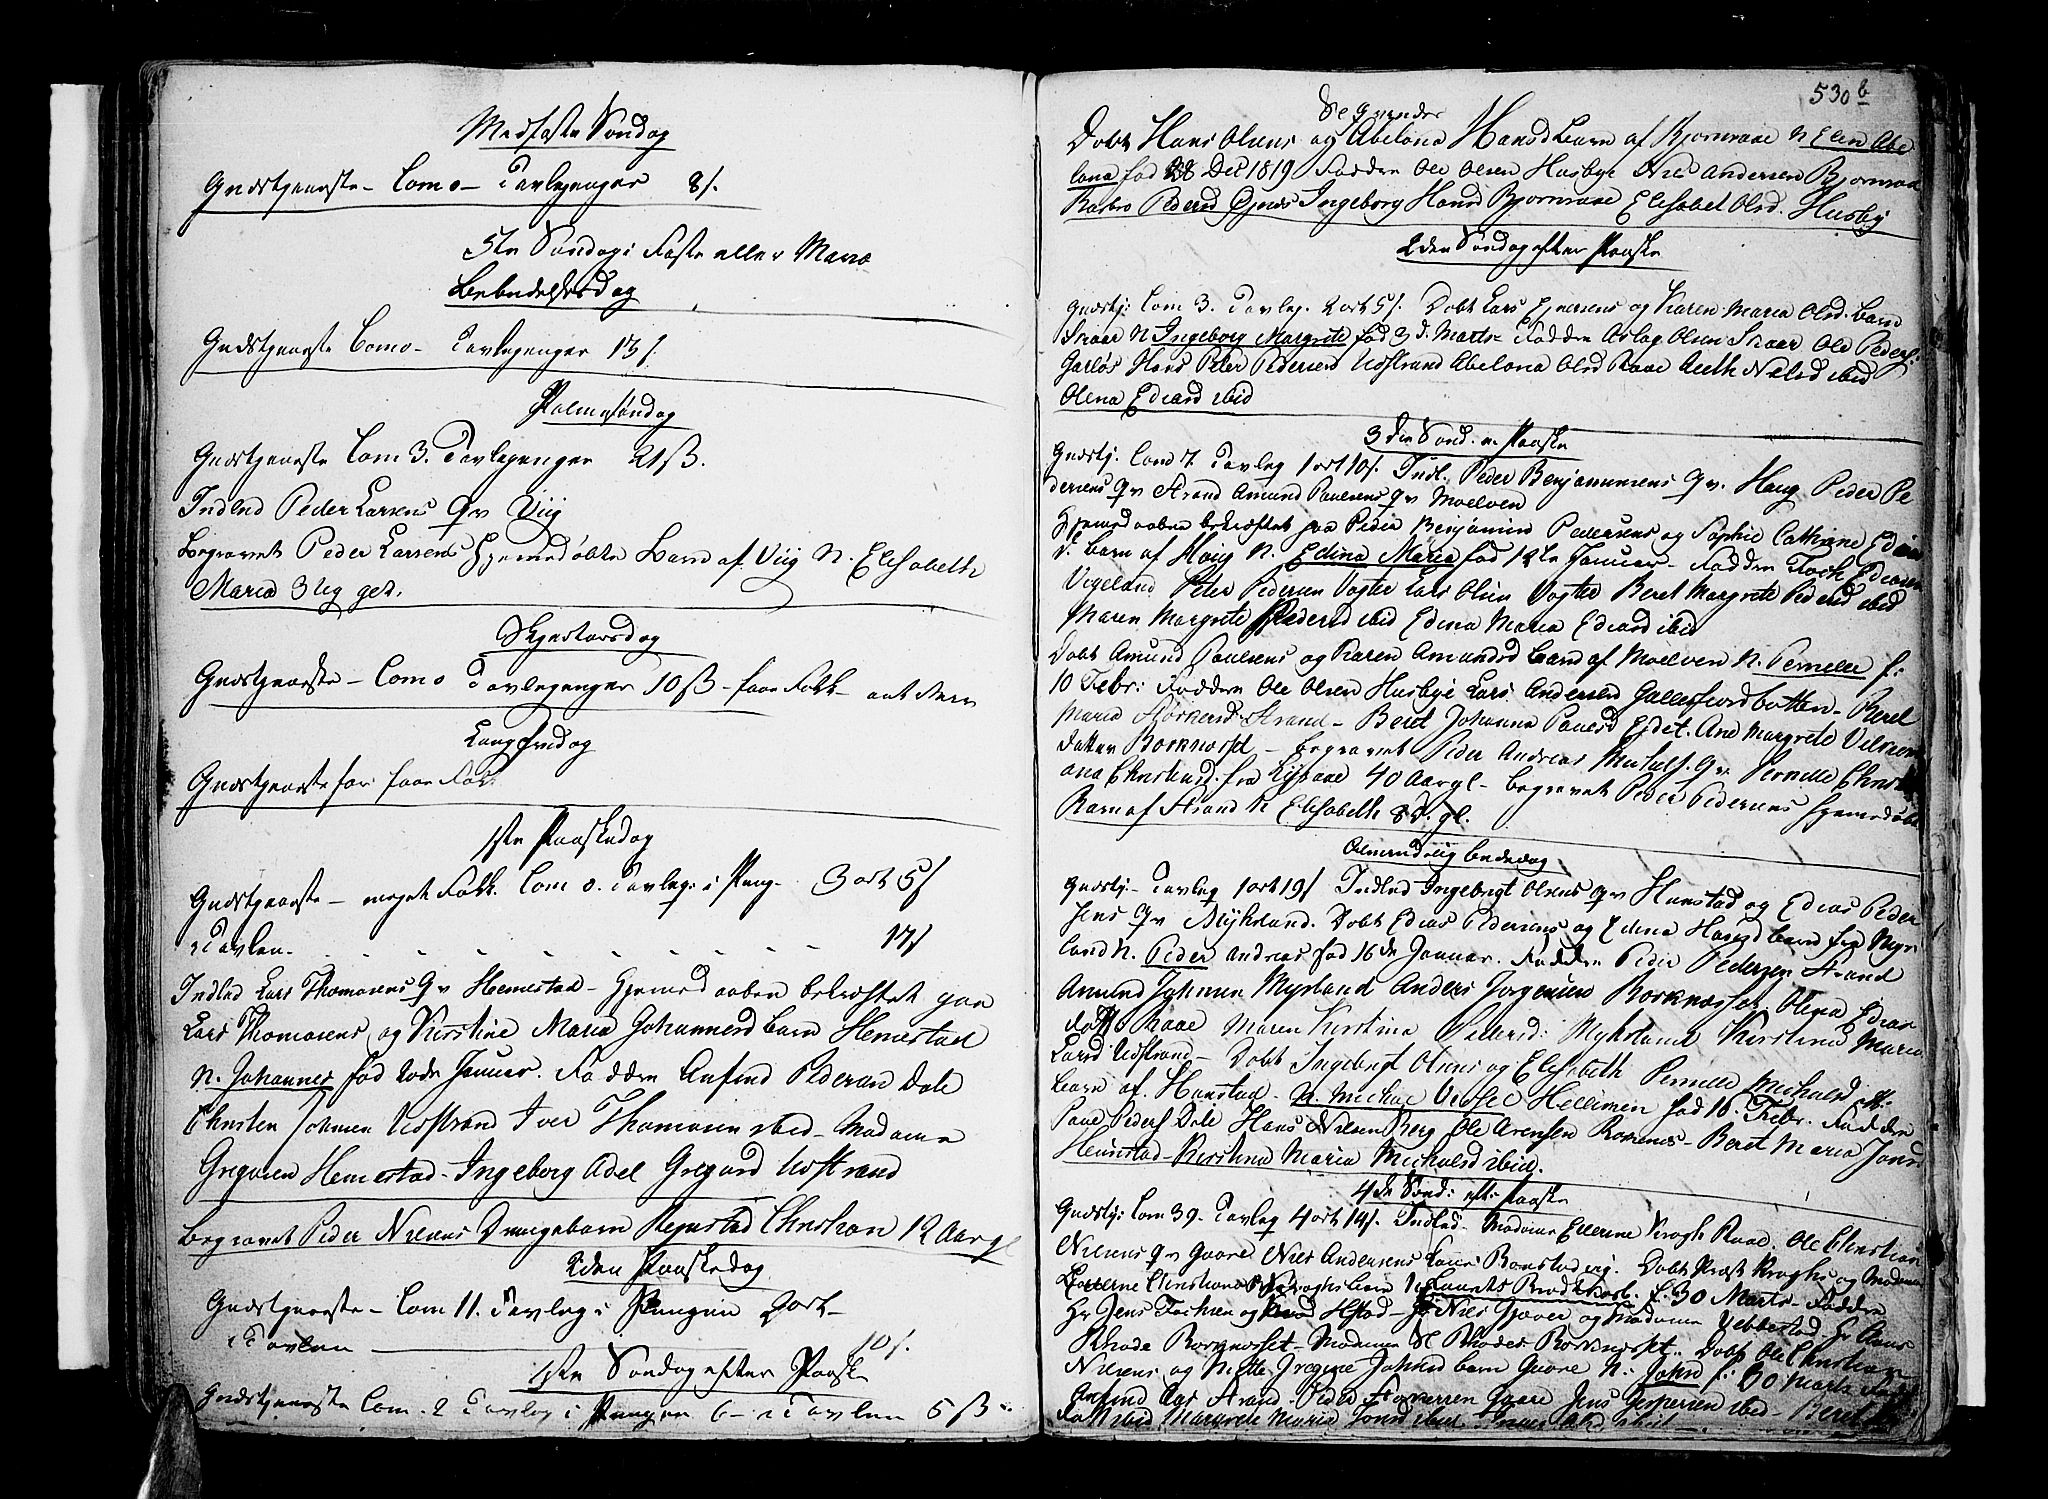 Midfaste Søndag
Gudstjeneste – Com 0 – Tavlepenger 8 s.
5te Søndag i Faste eller Mariæ
Bebudelsesdag
Gudstjeneste Com 0 – Tavlepenger 13 s.
Palmesøndag
Gudstjeneste Com 3. Tavlepenger 21 ß.
Indled Peder Larsens Qv Viig
Begravet Peder Larsens Hjemedøbte Barn af Viig N. Elisabeth
Maria 3 Ug gl.
Skjertorsdag
Gudstjeneste – Com 0 Tavlepenger 10 ß – faae Folk –
Langfredag
Gudstjeneste for faae Folk
1ste Paaskedag
Gudstjeneste – meget Folk. Com 0. Tavlep: i Pung. 3 ort 5 s
i Tavlen. - - - - - - - 17 s
Indled Lars Thomasens Qv Hemestad – Hjemedaaben bekræftet paa
Lars Thomasens og Kirstine Maria Johannesd barn Hemestad
N. Johannes fød 20de Januar. Faddere Anfind Pedersen Dale
Christen Johnsen Udstrand Iver Thomasen ibid – Madame
Gregersen Hemestad – Ingeborg Adel Gregersd Udstrand
Begravet Peder Nielsens Drengebarn Reinstad Christian 12 Aar gl
2den Paaskedag
Gudstjeneste – Com 11. Tavlep i Pungen 2 ort –
i Tavlen 10 s.
1ste Søndag efter Paaske
Gudstjeneste Com. 2 Tavlep i Pungen 6 – i Tavlen 5 ß –
530 b
Døbt Hans Olsens og Abelona Hansd Barn af Bjørnraae N Elen Abe
lona fød 28 Dec 1819 Faddere Ole Olsen Husbye Niels Andersen Bjørnraae
Barbro Pedersd Øines Ingeborg Hansd Bjørnraae Elisabet Olsd. Husby
2den Søndag efter Paaske
Gudstj: Com 3. Tavlep. 2 ort 5 s. Døbt Lars Ejnersens og Karen Maria Olsd. barn
Skaar N Ingeborg Margrete fød 3 d. Marts – Faddere Aslag Olsen Skaar Ole Peders:
Garløs Hans Peter Pedersen Udstrand Abelona Olsd Raae Aleth Nielsd ibid
Olena Edeasd ibid
3die Sønd. e. Paaske
Gudstj. Com 7. Tavlep 1 ort 10 s. Indl. Peder Benjaminsens Qv. Haug Peder Pe
dersens Qv Strand Amund Paulsens Qv Moelven
Hjemedaaben bekræftet paa Peder Benjamin Pedersens og Sophie Cathrine Edeas
d. Barn af Haug N. Edina Maria fød 12te Januar – Faddere Fock Edeasen
Vigeland Peter Pedersen Vogter Lars Olsen Vogter Beret Margrete Pedersd ibid
Maren Margrete Pedersd ibid Edina Maria Edeasd ibid
Døbt Amund Paulsens og Karen Amundsd barn af Moelven N. Pernelle f:
10 Febr: Faddere Ole Olsen Husbye Lars Andersen Gallesfiordbotten – Beret
Maria Strand – Beret Johanna Paulsd Eidet. Ane Margrete
datter Borknæsset – begravet Peder Andreas Michels. Qv. Pernelle Christi
ana Christensd. fra 40 Aar gl – begravet Peder Pedersens Hjemedøbt
Barn af Strand N Elisabeth 8 D. gl.
Almindelig bededag
Gudstj: – Tavlep 1 ort 19 s Indled Ingebrigt Olsens Qv Hanstad og Edeas Peder
sens Qv Myhrland. Døbt Edeas Pedersens og Edina Hansd barn fra Myr
land N. Peder Andreas fød 16de Januar. Faddere Peder Pedersen Strand
Amund Johnsen Myrland Anders Jørgensen Borknæsset Olena Edeas
datt Raae Maren Kirstina Pedersd: Myhrland Kirstina Maria
Larsd Udstrand – Døbt Ingebrigt Olsens og Elisabeth Pernelle Michelsd
barn af Hanstad – N. Michae Hellimen fød 16. Febr. Faddere
Paae Peders Dale Hans Nielsen Berg Ole Arensen – Beret Maria Jonsd
Heimstad – Kirstina Maria Michelsd ibid.
4de Sønd: eft: Paaske
Gudstj: Com 39. Tavlep 4 ort 14 s. Indled – Madame Ellerine Krogh Raae, Ole Christian
Nielsens Qv Gaare Niels Andersens Qv Døbt Præst Kroghs og Madame
Ellerine Christiana barn N. f. 30 Marts – Faddere
Hr Jens og – Hr Niels og Madame Hr
Rhode Borknæsset – Madame Rhodes Borknæsset. Døbt Ole Christian
Nielsens og Mette Gregine Johnsd barn Gaare N: John f. 30 Marts
Anfind Strand – Peder Gaare Jens Jespersen ibid – Beret
Margrete Maria Jonsd ibid